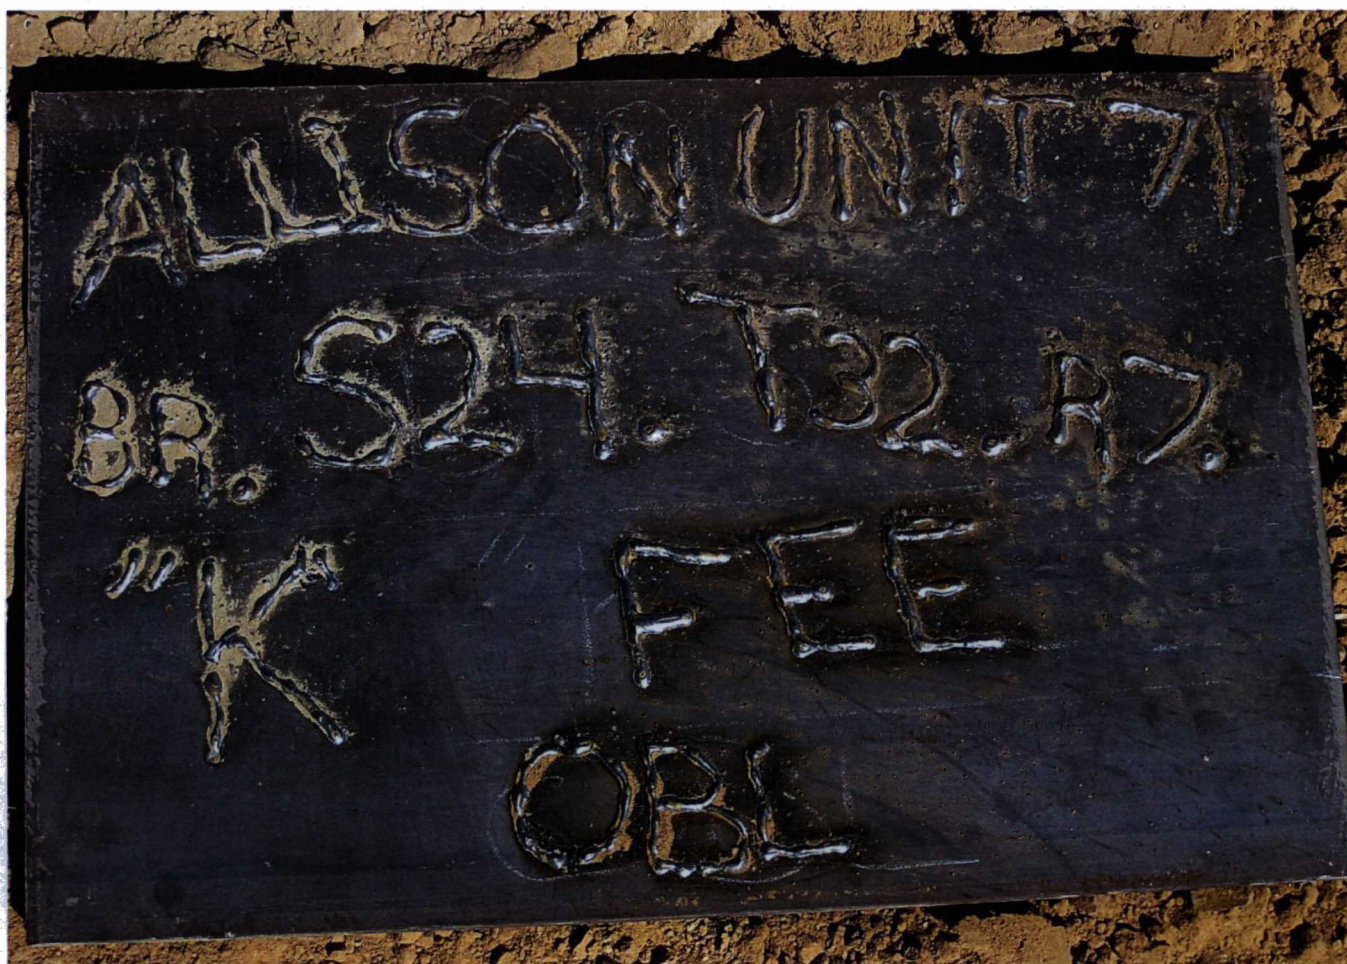 ALLISON UNIT 71
BR. S24. T32. R7.
"K" FEE
OBL